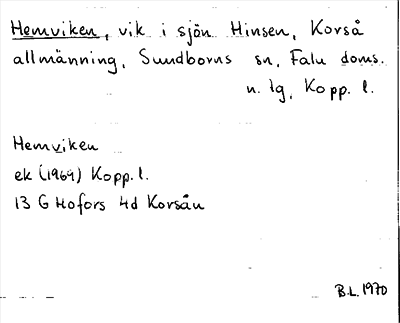 Hemviken, vik i sjön Hinsen, Korså
allmänning, Sundborns sn, Falu doms.
n. lg, Kopp. l.
Hemviken
ek (1969) Kopp. l.
13 G Hofors 4d Korsån
B.L. 1970